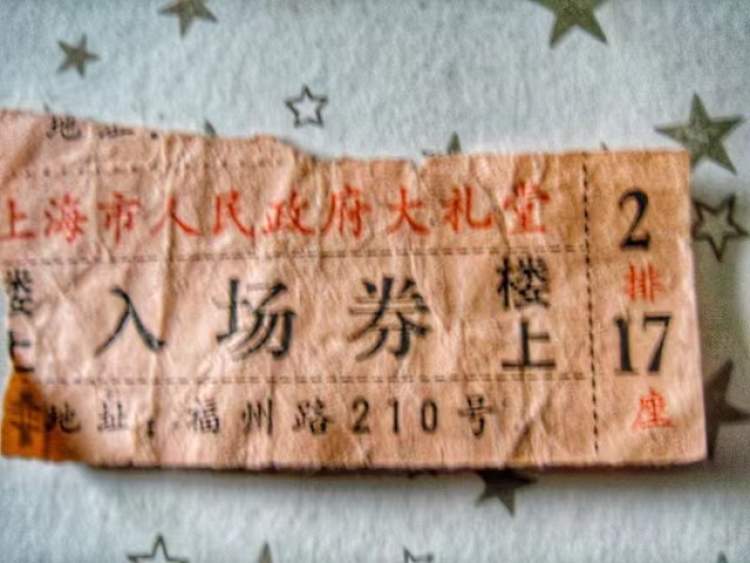 地址:
上海市人民政府大礼堂
楼上 入场券 楼上
地址:福州路210号
2
排
17
座